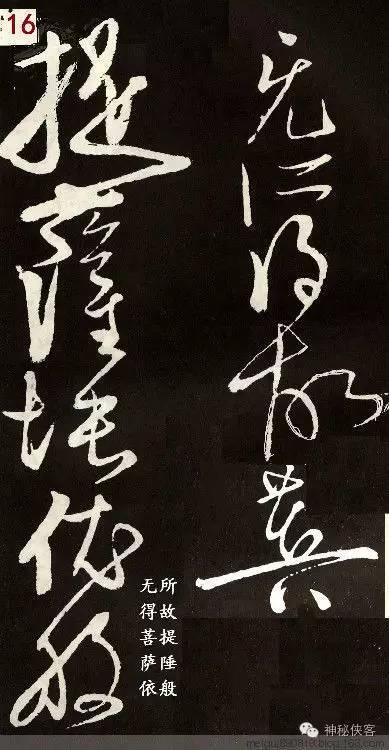 16
无所得故菩
提薩埵依般
无所
得故
菩提
萨陲
依般
神秘侠客